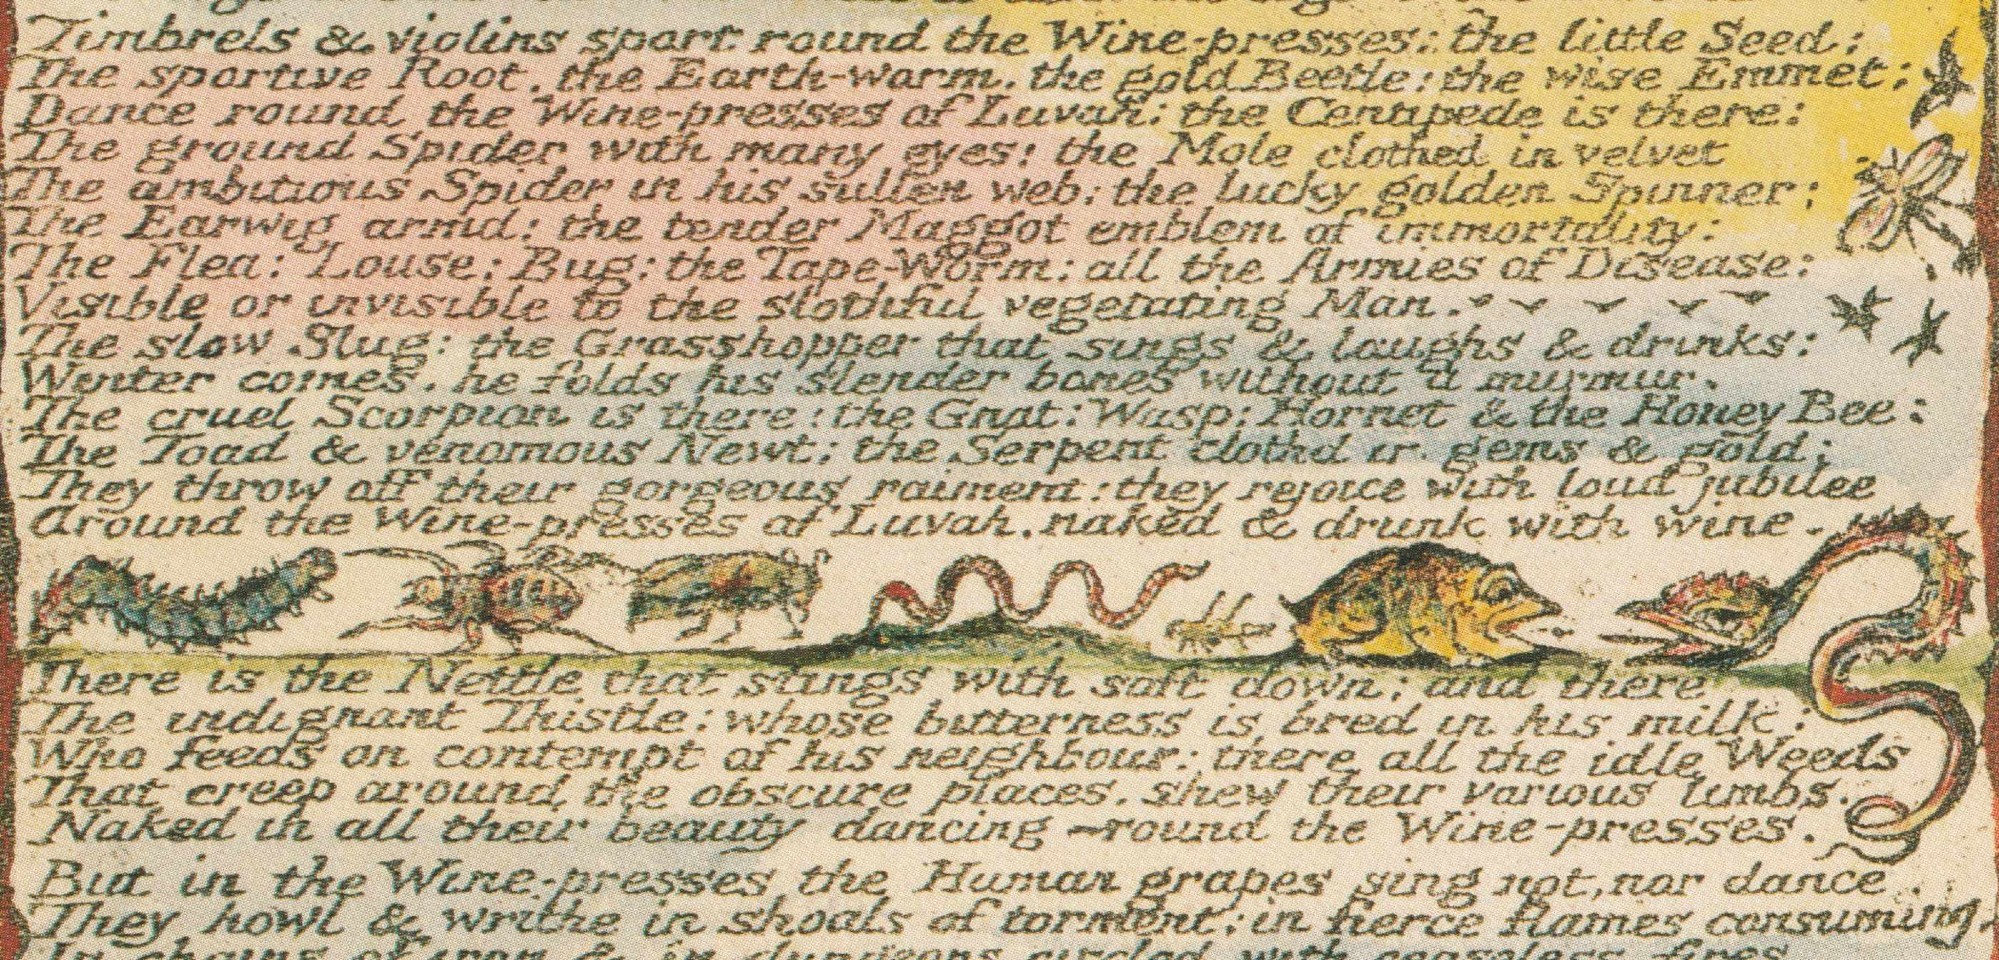 Timbrels & violins sport round the Wine-presses; the little Seed;
The sportive Root, the Earth-worm, the gold Beetle; the wise Emmet;
Dance round the Wine-presses of Luvah: the Centipede is there:
The ground Spider with many eyes: the Mole clothed in velvet
The ambitious Spider in his sullen web; the lucky golden Spinner;
The Earwig armd: the tender Maggot emblem of immortality:
The Flea: Louse: Bug: the Tape-Worm: all the Armies of Disease:
Visible or invisible to the slothful vegetating Man.
The slow Slug: the Grasshopper that sings & laughs & drinks:
Winter comes, he folds his slender bones without a murmur.
The cruel Scorpion is there: the Gnat: Wasp: Hornet & the Honey Bee:
The Toad & venomous Newt; the Serpent clothd in gems & gold:
They throw off their gorgeous raiment: they rejoice with loud jubilee
Around the Wine-presses of Luvah, naked & drunk with wine.
There is the Nettle that stings with soft down; and there
The indignant Thistle: whose bitterness is bred in his milk:
Who feeds on contempt of his neighbour: there all the idle Weeds
That creep around the obscure places, shew their various limbs.
Naked in all their beauty dancing round the Wine-presses.
But in the Wine-presses the Human grapes sing not, nor dance
They howl & writhe in shoals of torment; in fierce flames consuming,
In chains of iron & in dungeons circled with ceaseless fires